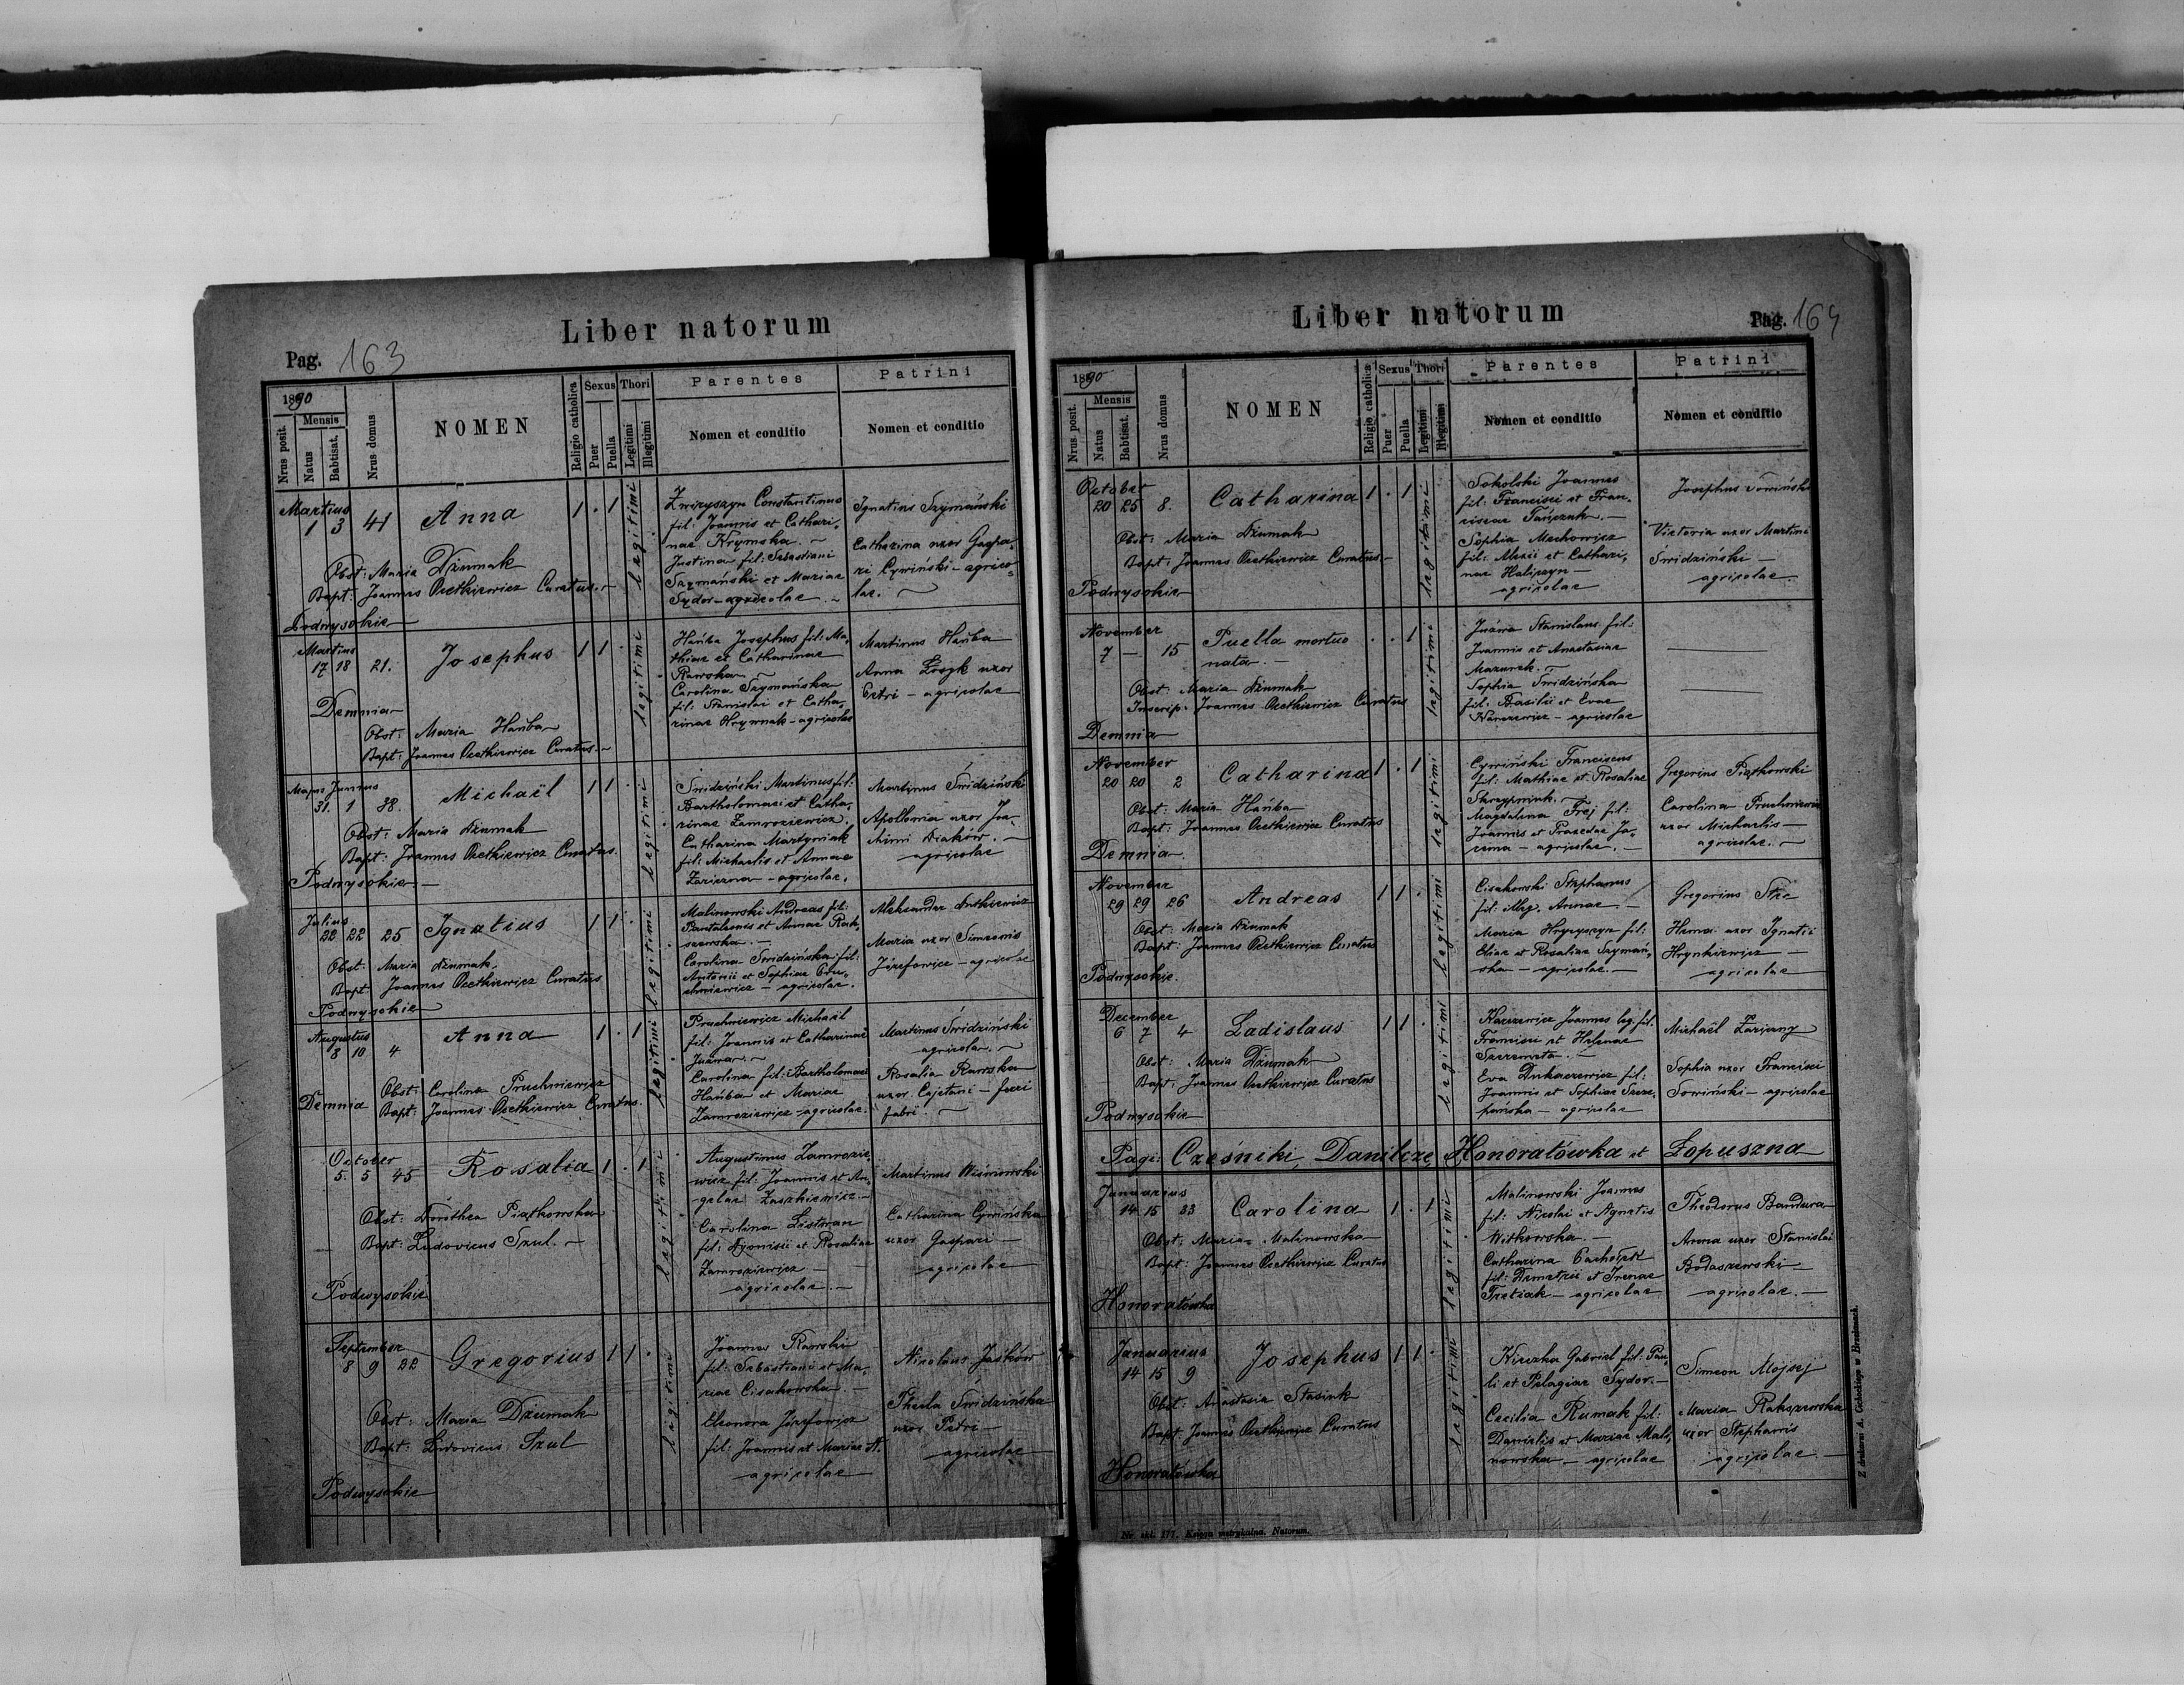 Liber natorum
Pag. 163
1890
Mensis
Nrus posit.
Natus
Babtisat.
Nrus domus
NOMEN
Religio catholica
Sexus
Puer
Puella
Thori
Legitimi
Illegitimi
Parentes
Nomen et conditio
Patrini
Nomen et conditio
Martius
1 3 41 Anna 1 . 1 legitimi
Obst: Maria Dżumak
Bapt: Joannes Ocetkiewicz Curatus.
Podwysokie
Zwiryszyn Constantinus
fil: Joannis et Cathari,
nae Krymska.
Justina fil: Sebastiani
Szymański et Mariae
Sydor - agricolae.
Ignatius Szymański
Catharina uxor Gaspa,
ri Cywiński - agrico,
lae.
Martius
17 18 21. Josephus 1 1 . legitimi
Demnia
Obst: Maria Hańba
Bapt: Joannes Ocetkiewicz Curatus.
Hańba Josephus fil: Ma,
thiae et Catharinae
Rawska
Carolina Szymańska
fil: Stanislai et Catha,
rinae Hrymak - agricolae
Martinus Hańba
Anna uxor
Petri - agricolae
Majus Junius
31. 1 38. Michaël 1 1 . legitimi
Obst: Maria Dżumak
Bapt: Joannes Ocetkiewicz Curatus.
Podwysokie
Swidziński Martinus fil:
Bartholomaei et Catha,
rinae Zamroziewicz.
Catharina Martyniak
fil: Michaelis et Annae
Zariczna - agricolae.
Martinus Swidziński
Apollonia uxor Joa,
chimi Diaków.
agricolae
Julius
22 22 25 Ignatius 1 1 . legitimi
Obst: Maria Dżumak.
Bapt: Joannes Ocetkiewicz Curatus
Podwysokie
Malinowski Andreas fil:
Pantaleonis et Annae Rak,
szewska.
Carolina Swidzińska fil:
Antonii et Sophiae Pru,
chniewicz - agricolae.
Aleksander
Maria uxor Simeonis
Józefowicz - agricolae
Augustus
8 10 4 Anna 1 . 1 legitimi
Obst: Carolina Pruchniewicz
Demnia Bapt: Joannes Ocetkiewicz Curatus.
Pruchniewicz Michaël
fil: Joannis et Catharinae
Juzwa.
Carolina fil: Bartholomaei
Hańba et Mariae
Zamroziewicz - agricolae.
Martinus Świdziński
agricola.
Rosalia Rawska
uxor Cajetani - ferri
fabri.
October
5. 5 45 Rosalia 1 . 1 legitimi
Obst: Dorothea Piątkowska
Bapt: Ludovicus Szul.
Podwysokie
Augustinus Zamrozie,
wicz fil. Joannis et An,
gelae Zaszkiewicz.
Carolina Listwan
fil: Dyonisii et Rosaliae
Zamroziewicz
agricolae.
Martinus Wiśniowski
Catharina Cywińska
uxor Gaspari
agricolae
September
8 9 22 Gregorius 1 1 . legitimi
Obst: Maria Dżumak
Bapt: Ludovicus Szul
Podwysokie
Joannes Rawski
fil: Sebastiani et Ma,
riae Cisakowska.
Eleonora Józefowicz
fil: Joannis et Mariae N.
agricolae
Nicolaus Jaśków
Thecla Swidzińska
uxor Petri
agricolae
Liber natorum
Pag. 164
1890
Mensis
Nrus posit.
Natus
Babtisat.
Nrus domus
NOMEN
Religio catholica
Sexus
Puer
Puella
Thori
Legitimi
Illegitimi
Parentes
Nomen et conditio
Patrini
Nomen et conditio
October
20 25 8. Catharina 1 . 1 legitimi
Obst: Maria Dżumak
Bapt: Joannes Ocetkiewicz Curatus.
Podwysokie
Sokolski Joannes
fil: Francisci et Fran,
ciscae Tańczuk.
Sophia Machowicz
fil: Alexii et Cathari,
nae Haliczyn
agricolae
Josephus Sowiński
Victoria uxor Martini
Swidziński
agricolae.
November
7 - 15 Puella mortuo . . 1 legitimi
nata.
Obst: Maria Dżumak
Inscrip: Joannes Ocetkiewicz Curatus
Demnia
Juzwa Stanislaus fil:
Joannis et Anastasiae
Mazurek.
Sophia Swidzińska
fil: Basilii et Evae
Karczewicz - agricolae
November
20 20 2 Catharina 1 . 1 legitimi
Obst: Maria Hańba
Bapt: Joannes Ocetkiewicz Curatus
Demnia.
Cywiński Franciscus
fil: Mathiae et Rosaliae
Skrzypniuk.
Magdalena Frej fil:
Joannis et Praxedae Ja,
rema - agricolae.
Gregorius Piątkowski
Carolina Pruchniewicz
uxor Michaelis
agricolae.
November
29 29 26 Andreas 1 1 . legitimi
Obst: Maria Dżumak
Bapt: Joannes Ocetkiewicz Curatus
Podwysokie.
Cisakowski Stephanus
fil: illeg. Annae.
Maria Hryzyszyn fil:
Eliae et Rosaliae Szymań,
ska - agricolae.
Gregorius
uxor Ignatii
Hrynkiewicz
agricolae
December
6 7 4 Ladislaus 1 1 . legitimi
Obst: Maria Dżumak
Bapt: Joannes Ocetkiewicz Curatus
Podwysokie
Karczewicz Joannes leg. fil.
Francisci et Helenae
Szeremeta.
Eva Dukaczewicz fil:
Joannis et Sophiae Szcze,
pańska - agricolae
Michaël Zarijczny
Sophia uxor Francisci
Sowiński - agricolae
Pagi: Cześniki, Danilcze, Honoratówka et Łopuszna
Januarius
14 15 33 Carolina 1 . 1 legitimi
Obst: Maria Malinowska
Bapt: Joannes Ocetkiewicz Curatus
Honoratówka
Malinowski Joannes
fil: Nicolai et Agnetis
Witkowska.
Catharina
fil: Demetrii et Irenae
Tretiak - agricolae
Theodorus Bandura
Anna uxor Stanislai
Bodaszewski
agricolae.
Januarius
14 15 9 Josephus 1 1 . legitimi
Obst: Anastasia Stasiuk
Bapt: Joannes Ocetkiewicz Curatus
Honoratówka
Kiczka Gabriel fil: Pau,
li et Pelagiae Sydor.
Cecilia Rumak fil:
Danielis et Mariae Mali,
nowska - agricolae
Simeon Mojsej
Maria Rakszewska
uxor Stephanis
agricolae.
Nr. skł. 177. Księga metrykalna. Natorum.